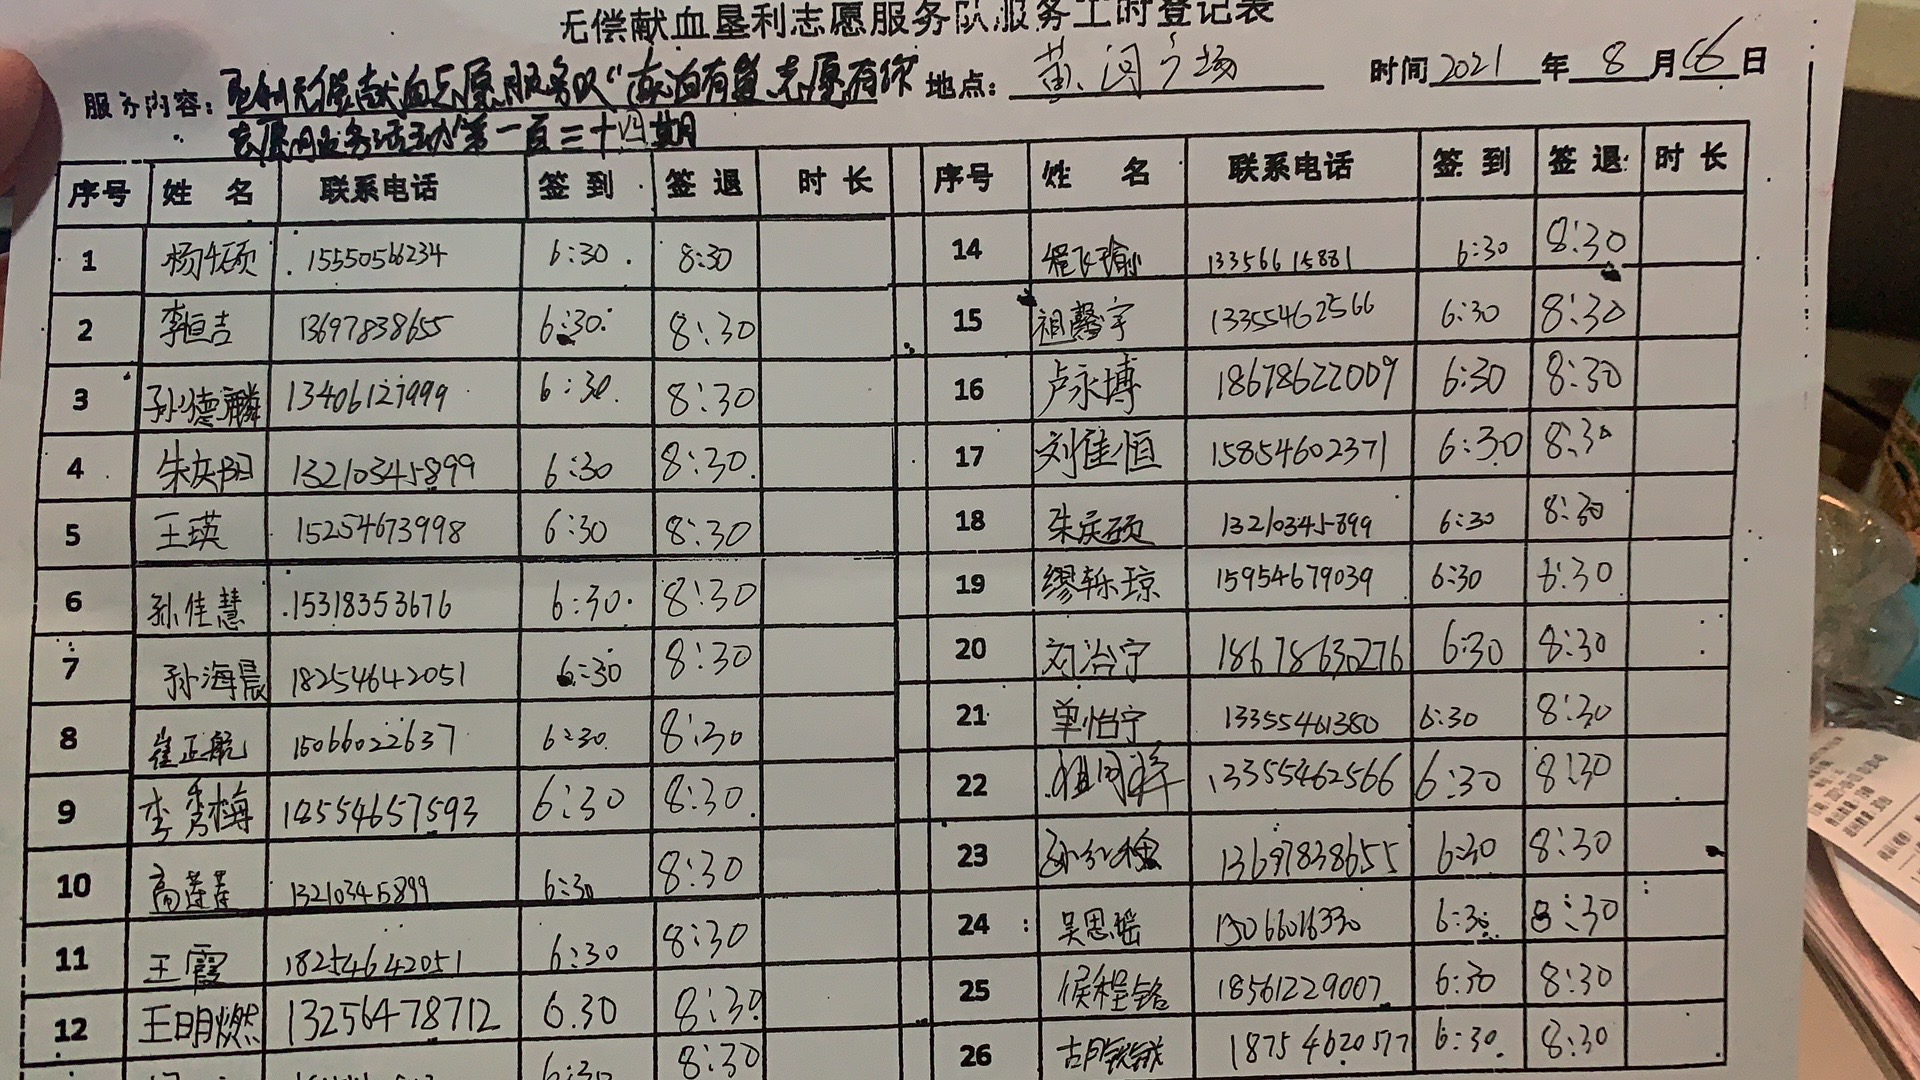 无偿献血垦利志愿服务队服务工时登记表
服务内容: 垦利无偿献血志愿服务队"献血有我 志愿有你" 地点: 黄河广场 时间 2021 年 8 月 06 日
志愿服务活动"第一百三十四期
序号 姓 名 联系电话 签 到 签 退 时 长 序号 姓 名 联系电话 签 到 签 退 时 长
1 杨硕 15550566234 6:30 8:30 14 程飞瑜 13356615881 6:30 8:30
2 李恒吉 13697838655 6:30 8:30 15 祖馨宇 13355462566 6:30 8:30
3 孙德麟 13406121999 6:30 8:30 16 卢永博 18678622009 6:30 8:30
4 朱庆阳 13210345899 6:30 8:30 17 刘佳恒 15854602371 6:30 8:30
5 王瑛 15254673998 6:30 8:30 18 朱庆硕 13210345899 6:30 8:30
6 孙佳慧 15318353676 6:30 8:30 19 缪轹琼 15954679039 6:30 8:30
7 孙海晨 18254642051 6:30 8:30 20 刘治宁 18678630276 6:30 8:30
8 崔正航 15066022637 6:30 8:30 21 单怡宁 13355461380 6:30 8:30
9 李秀梅 18554657593 6:30 8:30 22 13355462566 6:30 8:30
10 高莲莲 13210345899 6:30 8:30 23 13697838655 6:30 8:30
11 王霞 18254642051 6:30 8:30 24 吴思瑶 15066016330 6:30 8:30
12 王明燃 13256478712 6.30 8:30 25 侯程铭 18561229007 6:30 8:30
6:30 8:30 26 18754620577 6:30 8:30